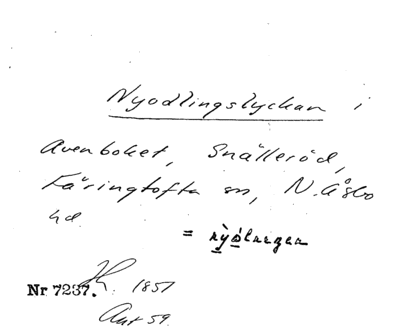 Nyodlingslyckan i
Avenboket, Snälleröd,
Färingtofta sn, N. Åsbo
hd
=
Nr 7237. 1851
Ant 59